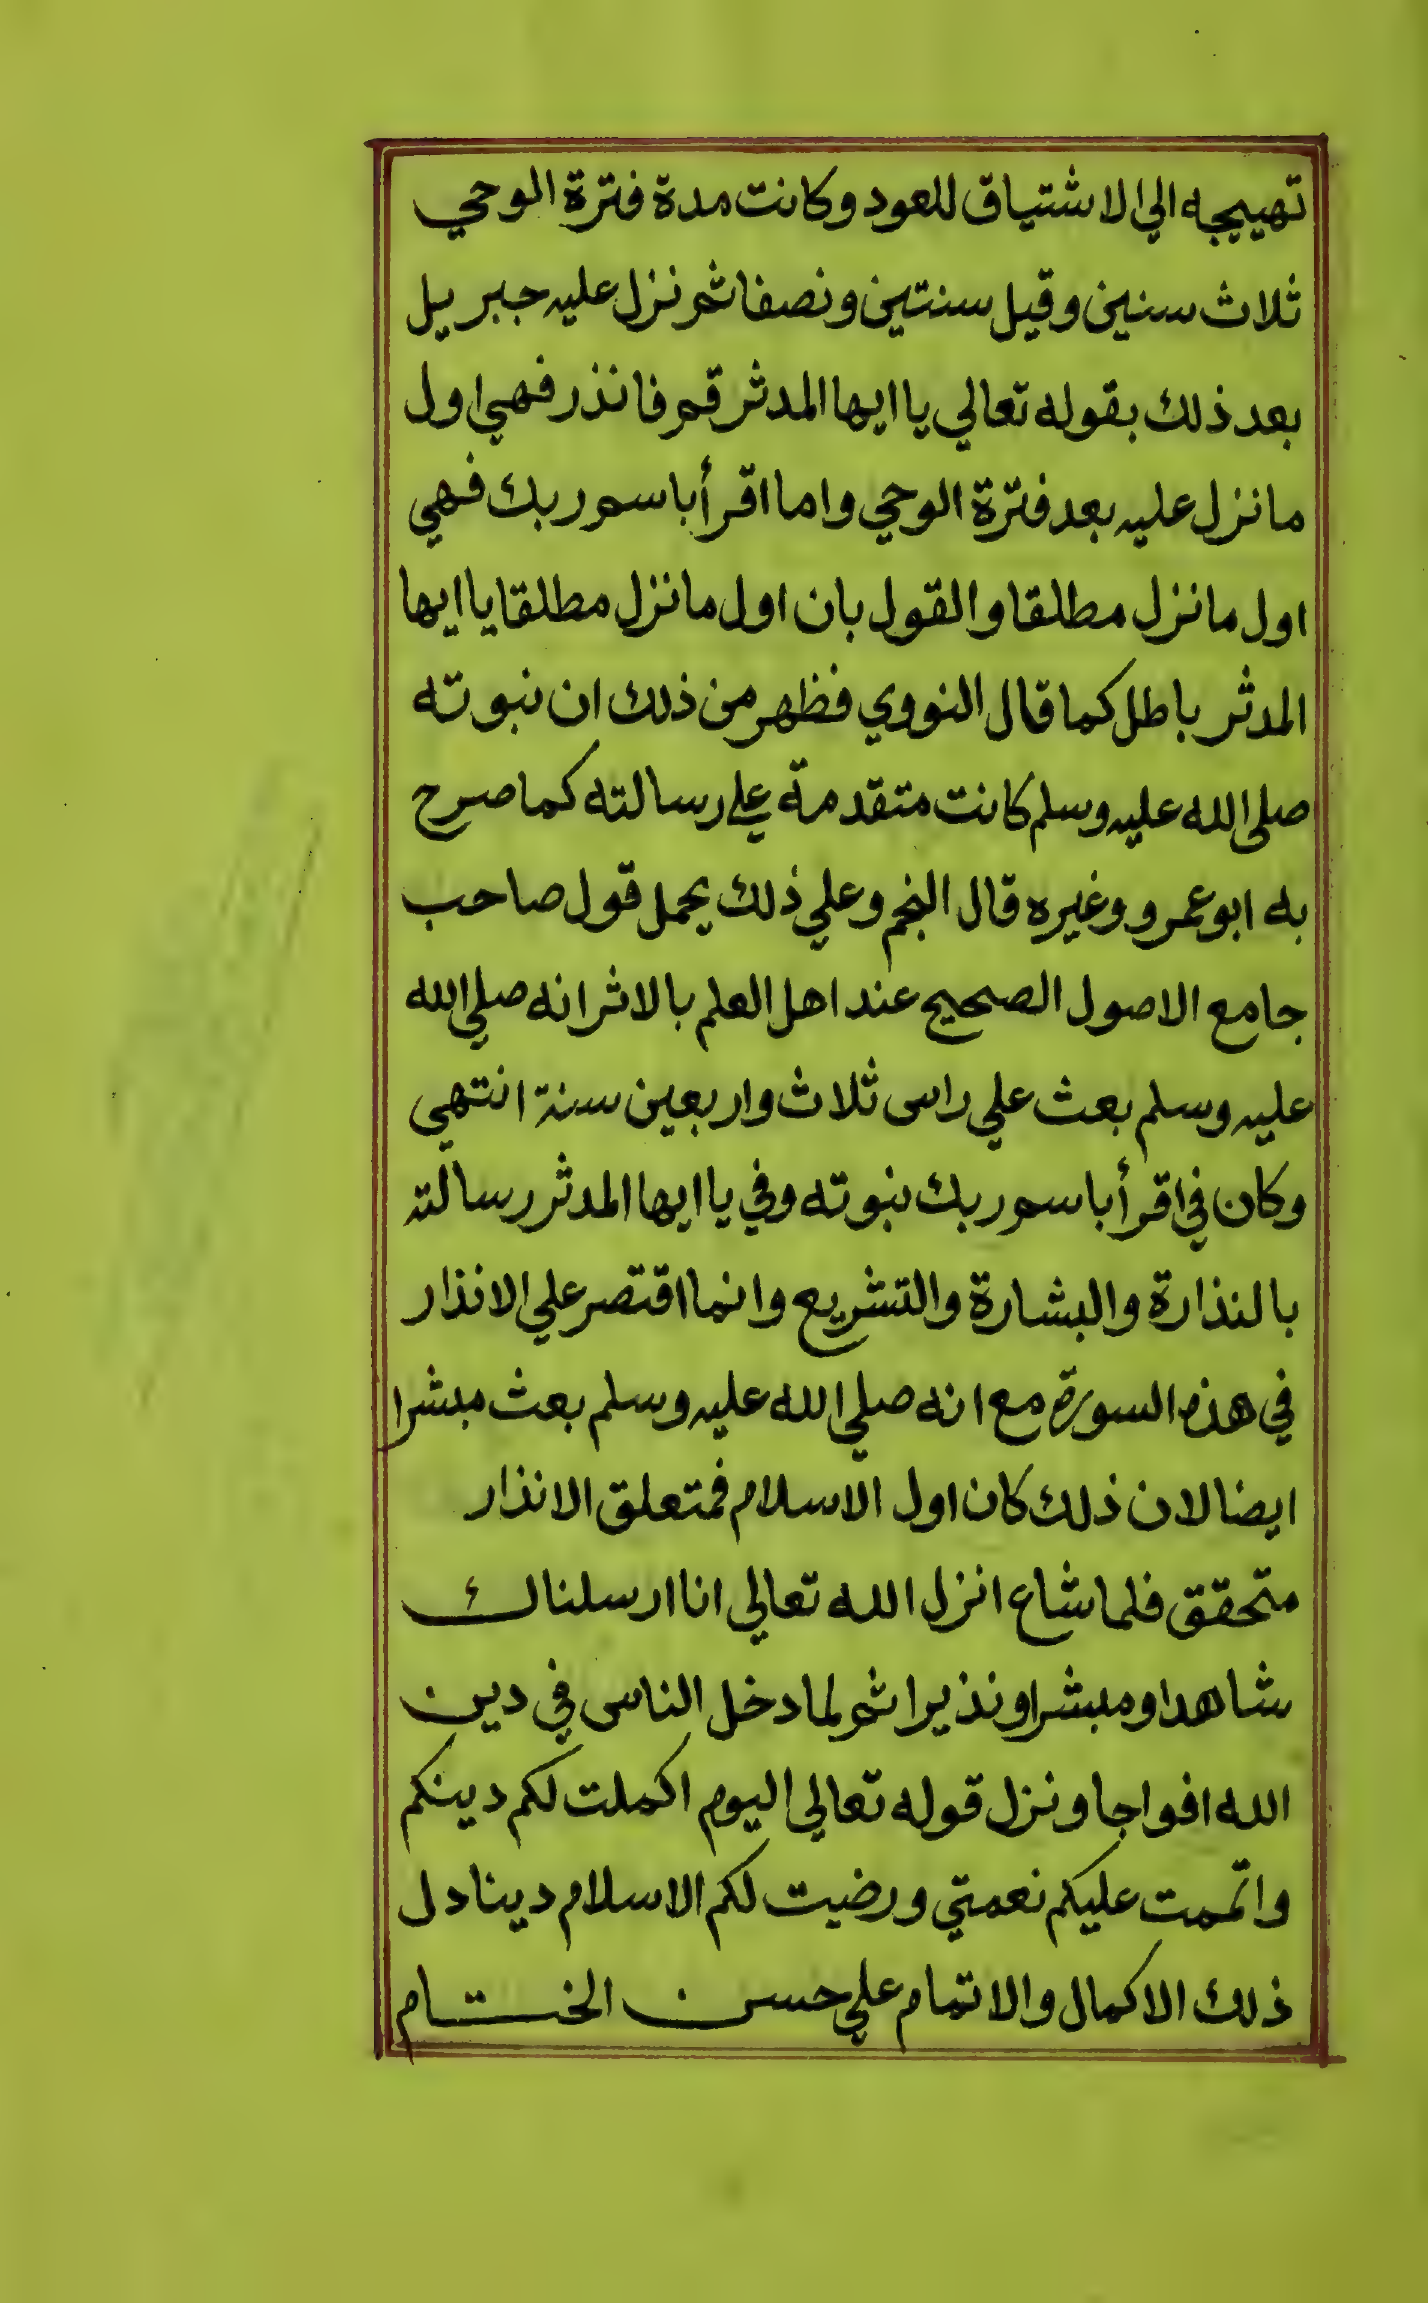 تهييجه الي الاشتياق للعود وكانت مدة فترة الوحي
ثلاث سنين وقيل سنتين ونصفا ثم نزل عليه جبريل
بعد ذلك بقوله تعالي يا ايها المدثر قم فانذر فهي اول
ما نزل عليه بعد فترة الوحي واما اقرأ باسم ربك فهي
اول ما نزل مطلقا والقول بان اول ما نزل مطلقا يا ايها
المدثر باطل كما قال النووي فظهر من ذلك ان نبوته
صلي الله عليه وسلم كانت متقدمة علي رسالته كما صرح
به ابو عمرو وغيره قال النجم وعلي ذلك يحمل قول صاحب
جامع الاصول الصحيح عند اهل العلم بالاثر انه صلي الله
عليه وسلم بعث علي راس ثلاث واربعين سنة انتهي
وكان في اقرأ باسم ربك نبوته وفي يا ايها المدثر رسالته
بالنذارة والبشارة والتشريع وانما اقتصر علي الانذار
في هذه السورة مع انه صلي الله عليه وسلم بعث مبشرا
ايضا لان ذلك كان اول الاسلام فمتعلق الانذار
متحقق فلما شاع انزل الله تعالي انا ارسلناك
شاهدا ومبشرا ونذيرا ثم لما دخل الناس في دين
الله افواجا ونزل قوله تعالي اليوم اكملت لكم دينكم
واتممت عليكم نعمتي ورضيت لكم الاسلام دينا دل
ذلك الاكمال والاتمام علي حسن الختام